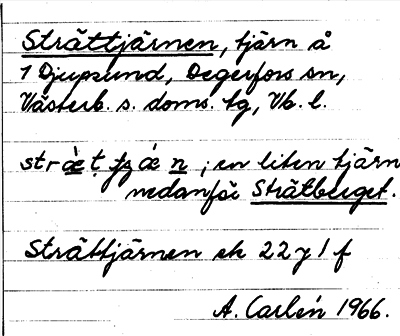 Strättjärnen, tjärn å
1 Djupsund, Degerfors sn,
Västerb. s. doms. tg, Vb. l.
en liten tjärn
nedanför Strätberget.
Strättjärnen ek 22 y 1 f
A. Carlén 1966.